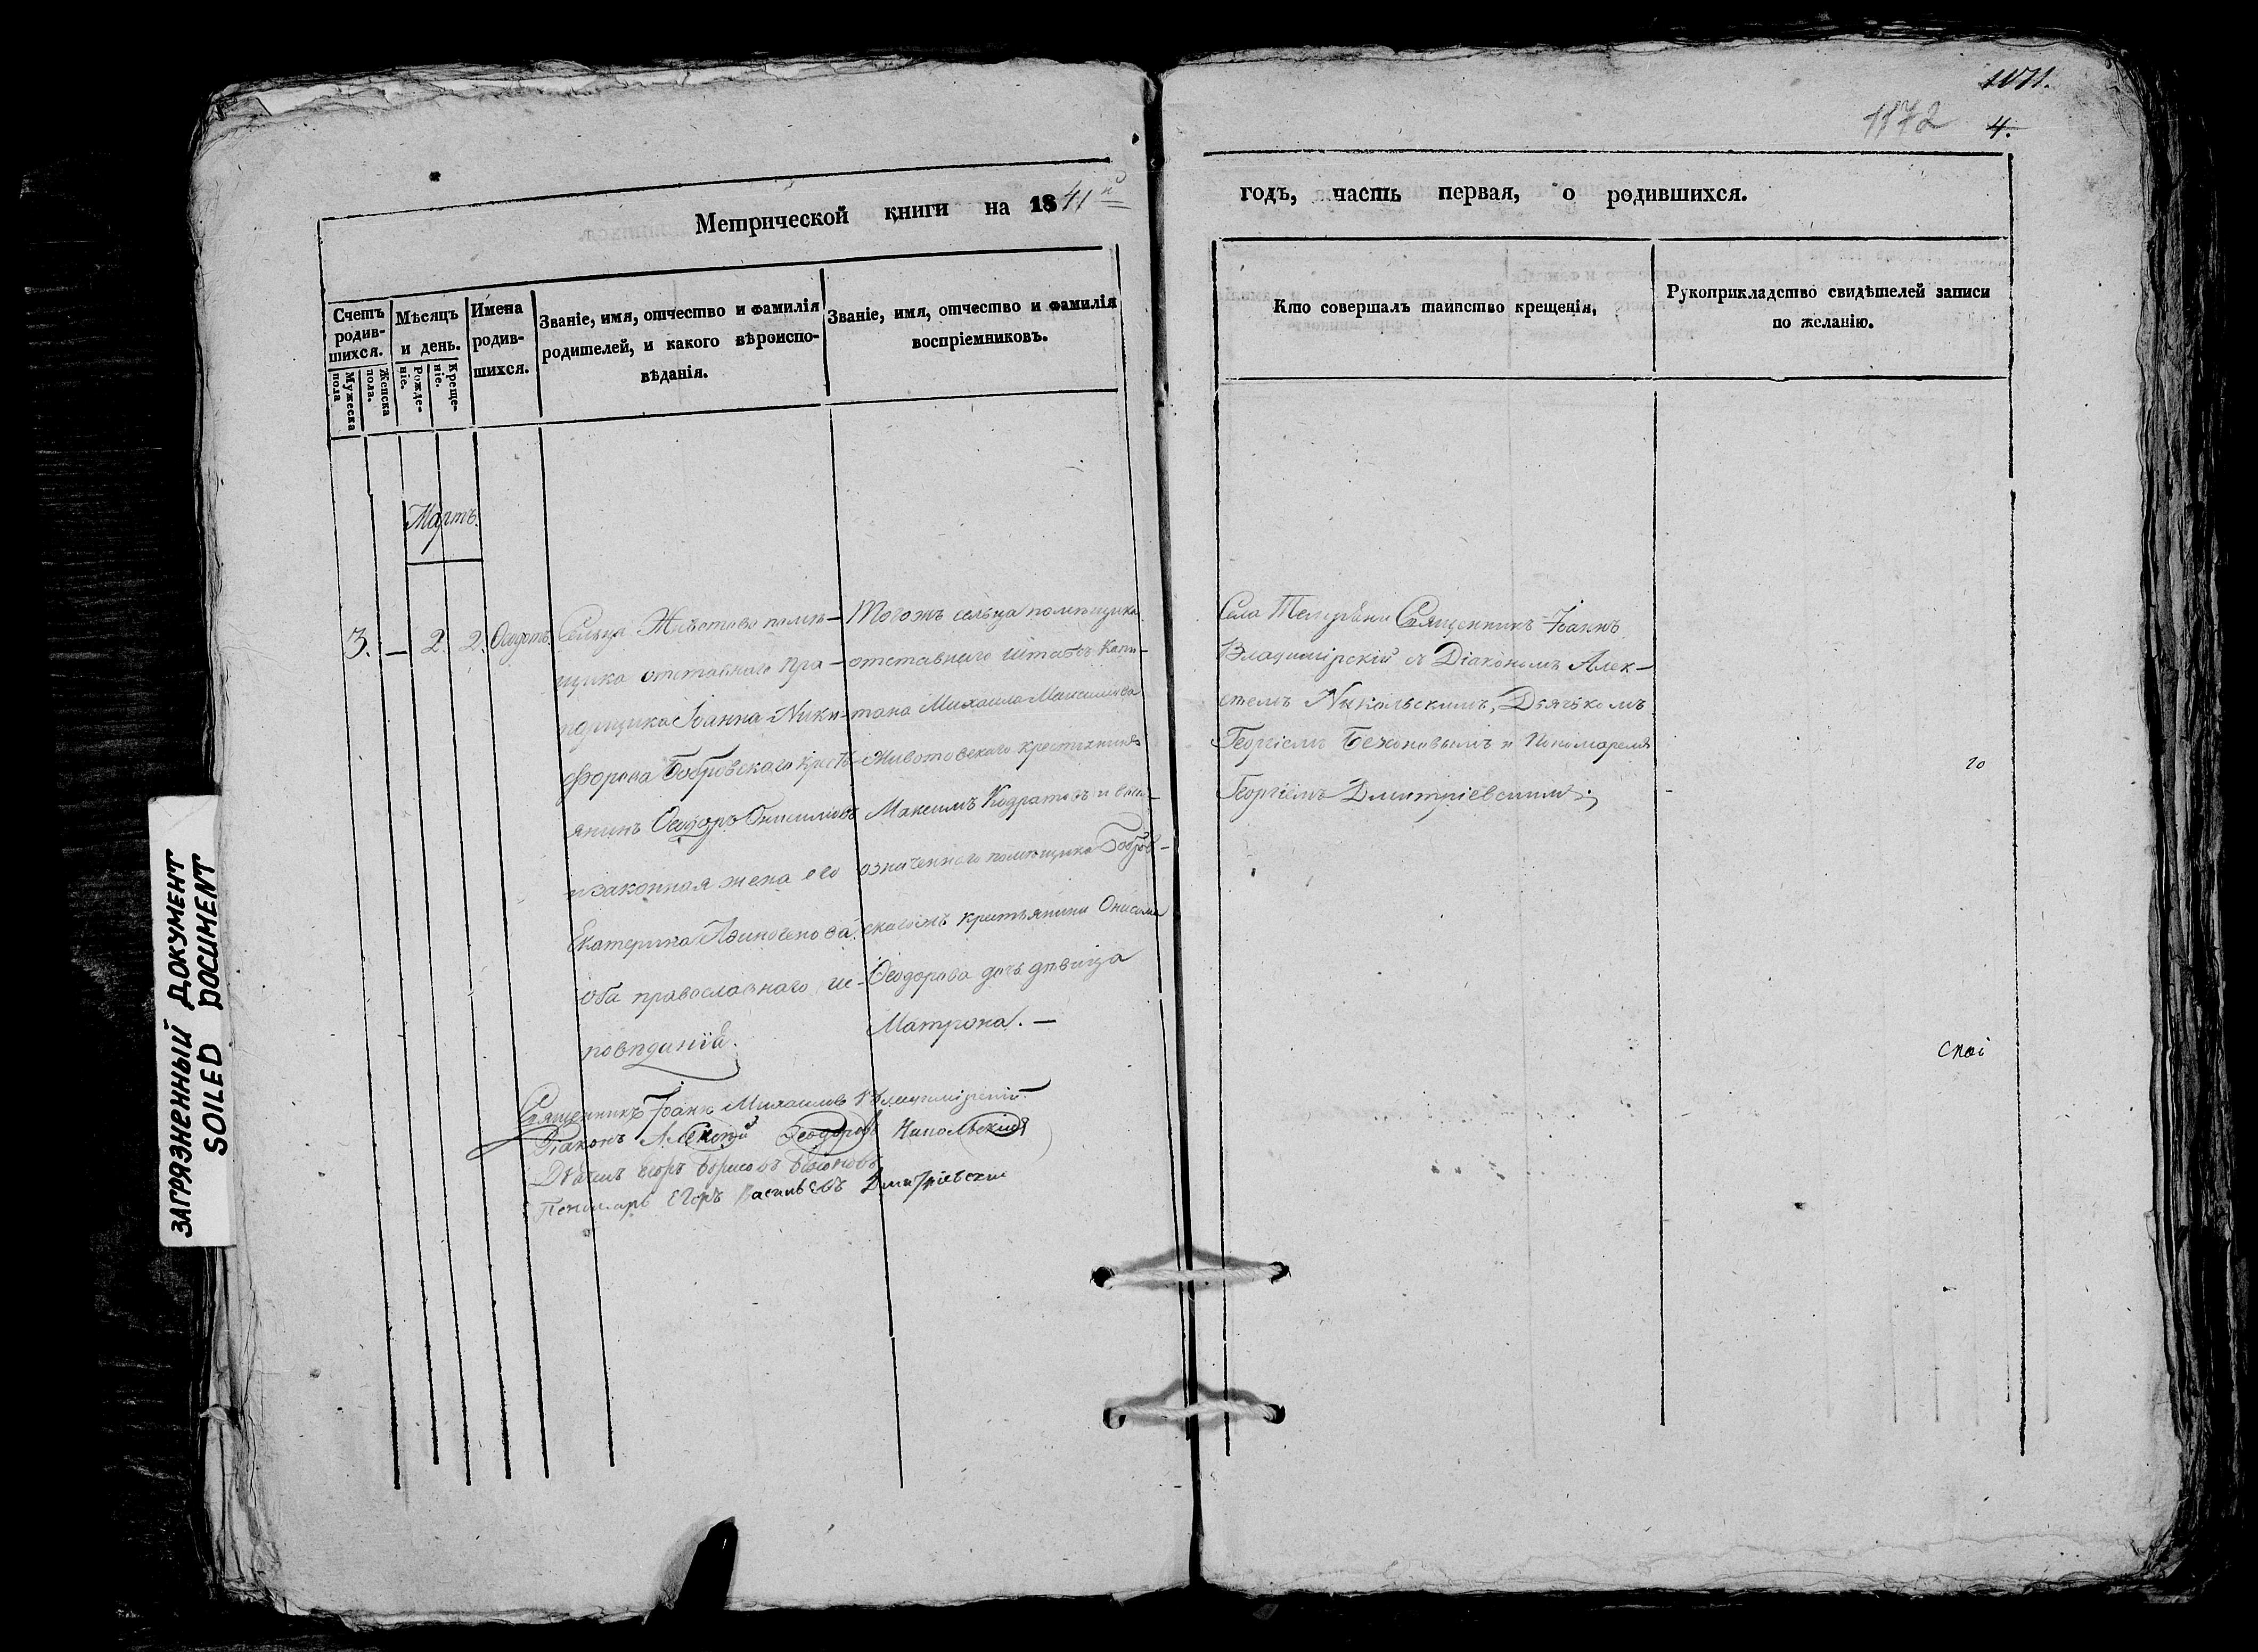 1171.
1172 4.
Метрической книги на 1841й
годъ, часть первая, о родившихся.
Счетъ родившихся.
Мужеска пола
Женска пола.
Мѣсяцъ и день.
Рожденіе.
Крещеніе.
Имена родившихся.
Званіе, имя, отчество и фамилія родителей, и какого вѣроисповѣданія.
Званіе, имя, отчество и фамилія воспріемниковъ.
Кто совершалъ таинство крещенія.
Рукоприкладство свидѣтелей записи по желанію.
Мартъ.
3. — 2. 2.
Сельца Животова помѣ-
щика отставнаго пра-
порщика Іоанна Ники-
форова Бобровскаго кресть-
янинъ Ѳеодоръ Онисимовъ
и законная жена его
Екатерина
оба православнаго ис-
повѣданія.
Тогожъ сельца помѣщика
отставнаго Штабсъ Капи-
тана Михаила Максимова
Животовскаго крестьянинъ
Максимъ Кодратовъ и вы-
означеннаго помѣщика Бобров-
скагожъ крестьянина Онисима
Ѳеодорова дочь дѣвица
Матрона. —
Священникъ Іоаннъ Михаиловъ Владимірскій.
Діаконъ Алексѣй Ѳеодоровъ Никольскій
Егоръ Борисовъ
Пономарь Егоръ Васильевъ Дмитріевскій
Села Священникъ Іоаннъ
Владимірскій съ Діакономъ Алек-
сѣемъ Никольскимъ, Дьячкомъ
Георгіемъ и Пономаремъ
Георгіемъ Дмитріевскимъ
го
скаі
ЗАГРЯЗНЕННЫЙ ДОКУМЕНТ
SOILED DOCUMENT